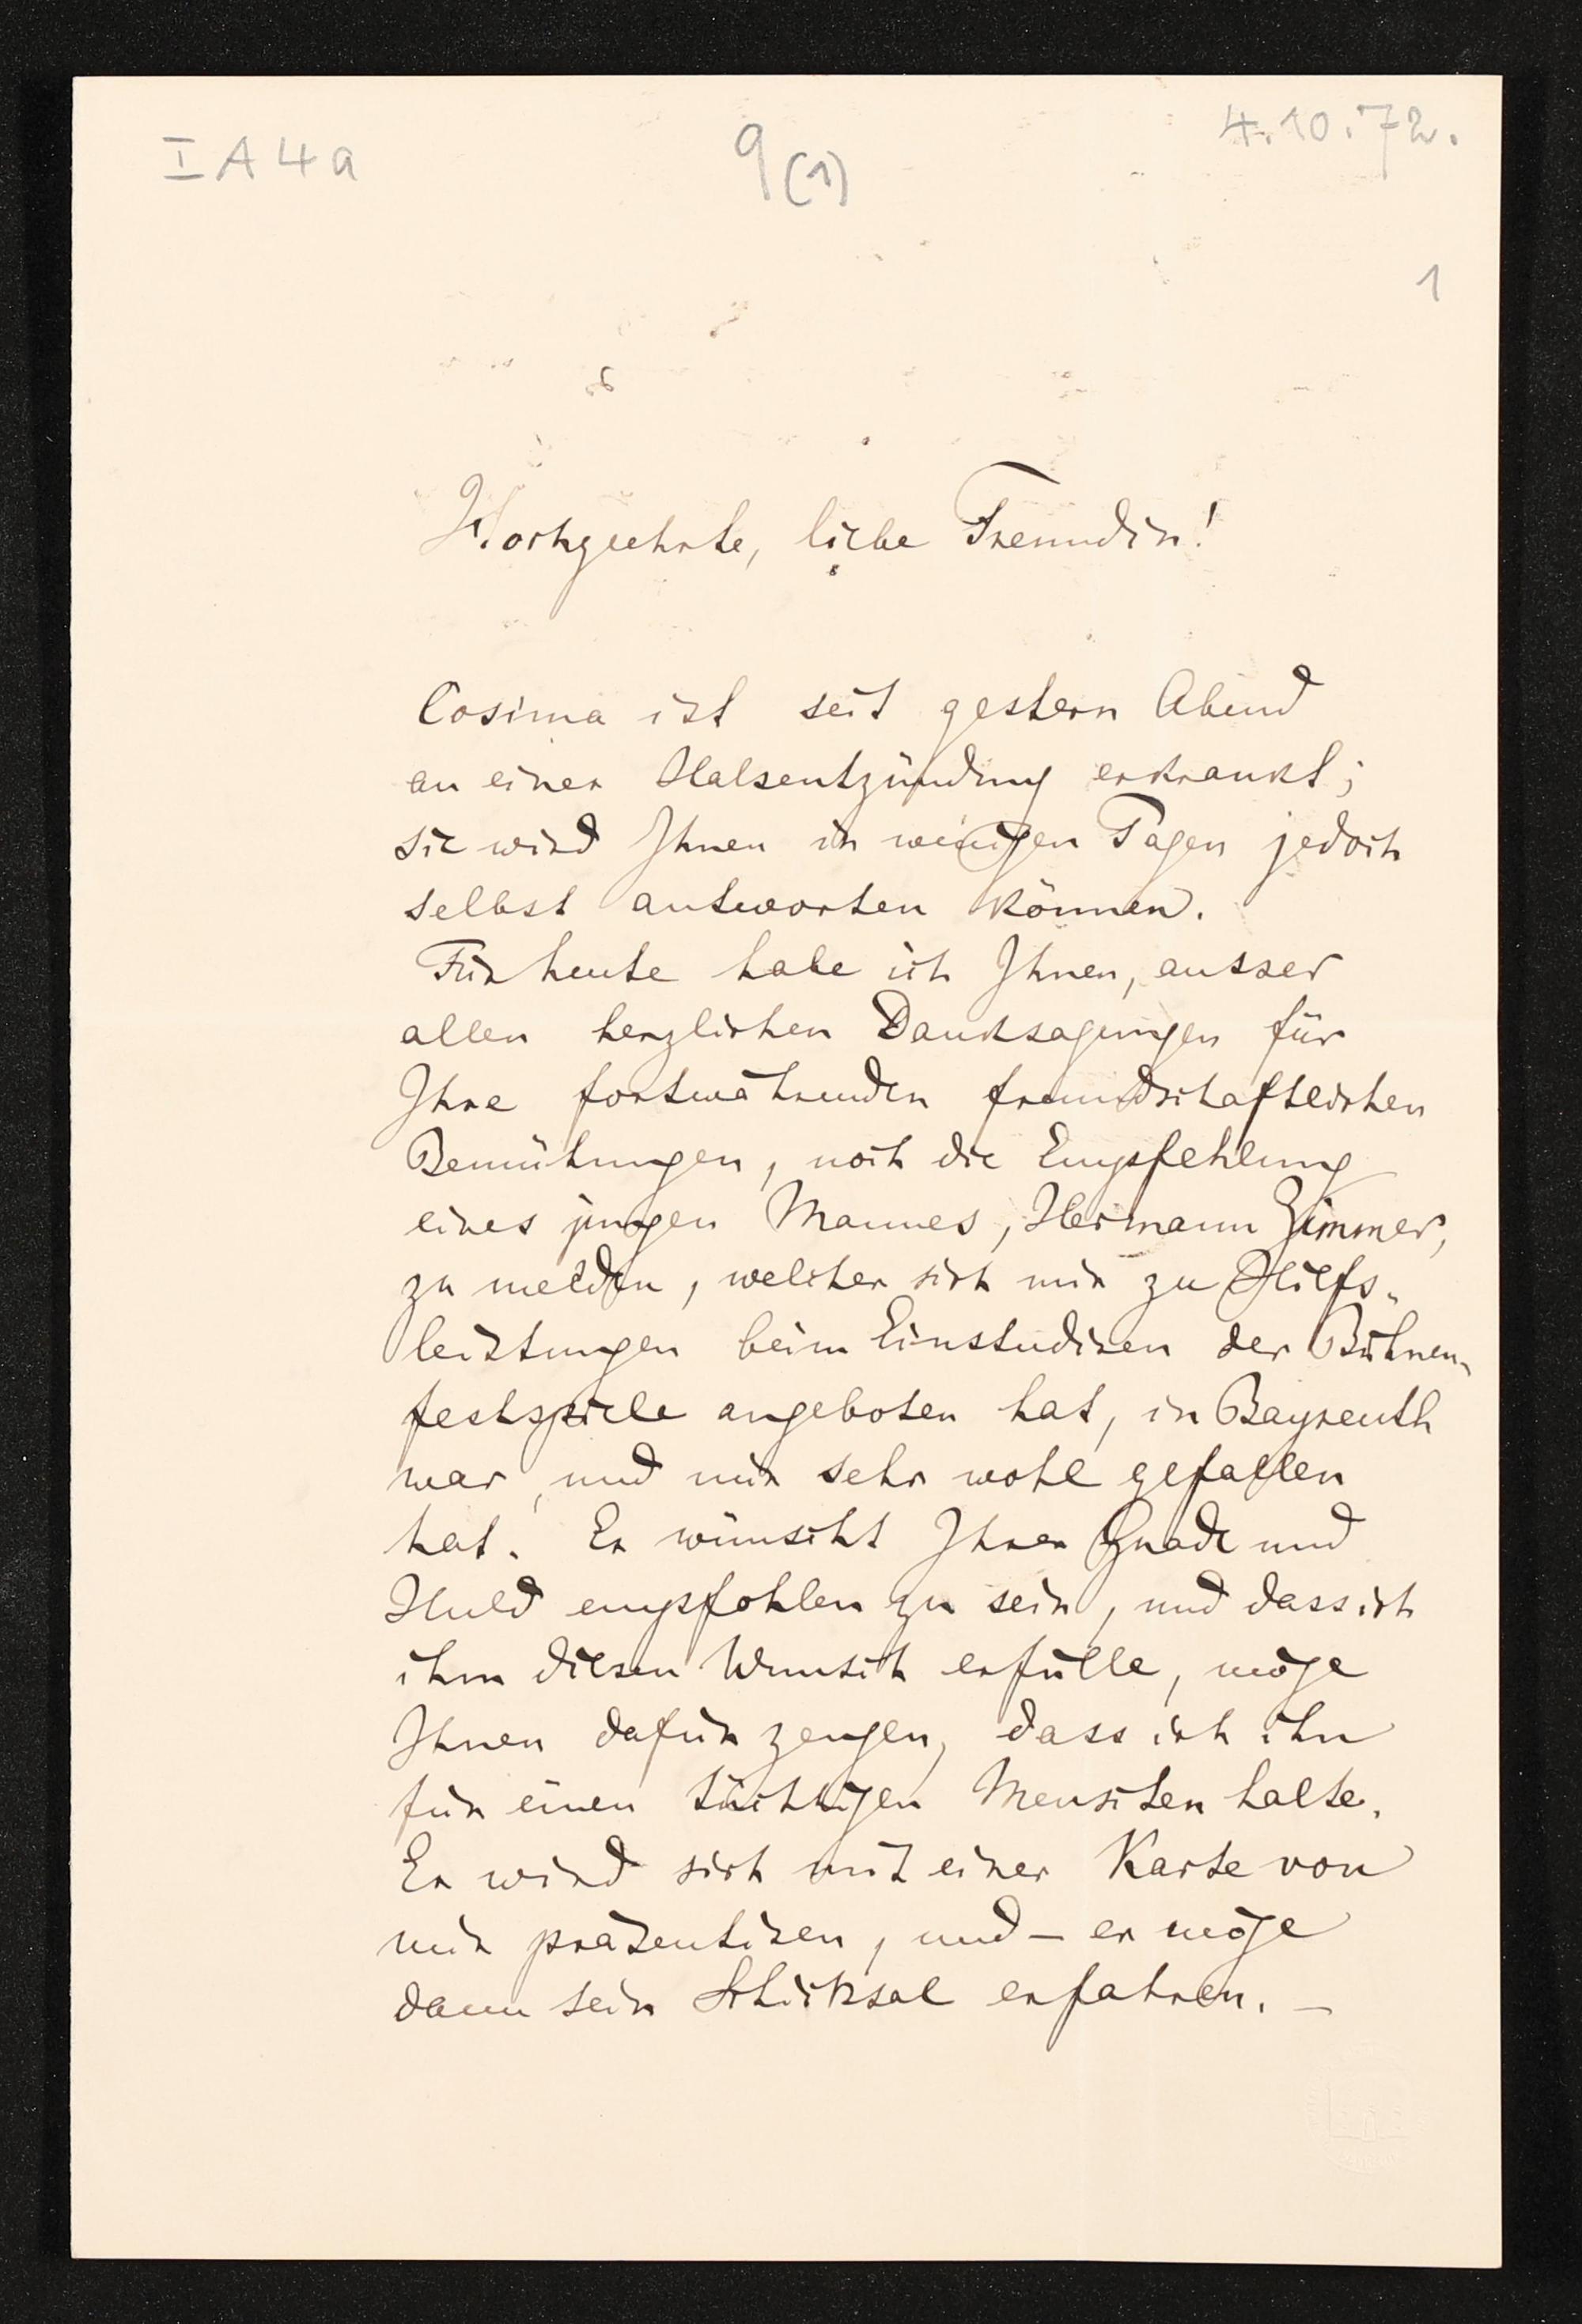 I A 4 a
9 (1)
4.10.72.
1
Hochgeehrte, liebe Freundin!
Cosima ist seit gestern Abend
an einer Halsentzündung erkrankt;
sie wird Ihnen in wenigen Tagen jedoch
selbst antworten können.
Für heute habe ich Ihnen, ausser
allen herzlichen Danksagungen für
Ihre fortwährenden freundschaftlichen
Bemühungen, noch die Empfehlung
eines jungen Mannes, Hermann Zimmer,
zu melden, welcher sich mir zu Hilfs-
leistungen beim Einstudiren der Bühnen-
festspiele angeboten hat, in Bayreuth
war, und mir sehr wohl gefallen
hat. Er wünscht Ihrer Gnade und
Huld empfohlen zu sein, und dass ich
ihm diesen Wunsch erfülle, möge
Ihnen dafür zeugen, dass ich ihn
für einen tüchtigen Menschen halte.
Er wird sich mit einer Karte von
mir präsentiren, und – er möge
dann sein Schicksal erfahren. –